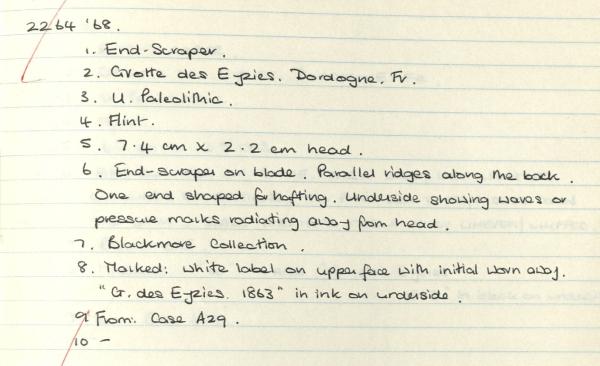 2264 '68.
1. End-Scraper.
2. Grotte des Eyzies. Dordogne. Fr.
3. U. Paleolithic.
4. Flint.
5. 7.4 cm x 2.2 cm head.
6. End-scraper on blade. Parallel ridges along the back.
One end shaped for hafting. Underside showing waves or
pressure marks radiating away from head.
7. Blackmore Collection.
8. Marked: white label on upper face with initial worn away.
"G. des Eyzies. 1863" in ink on underside.
9 From: Case A29.
10 -